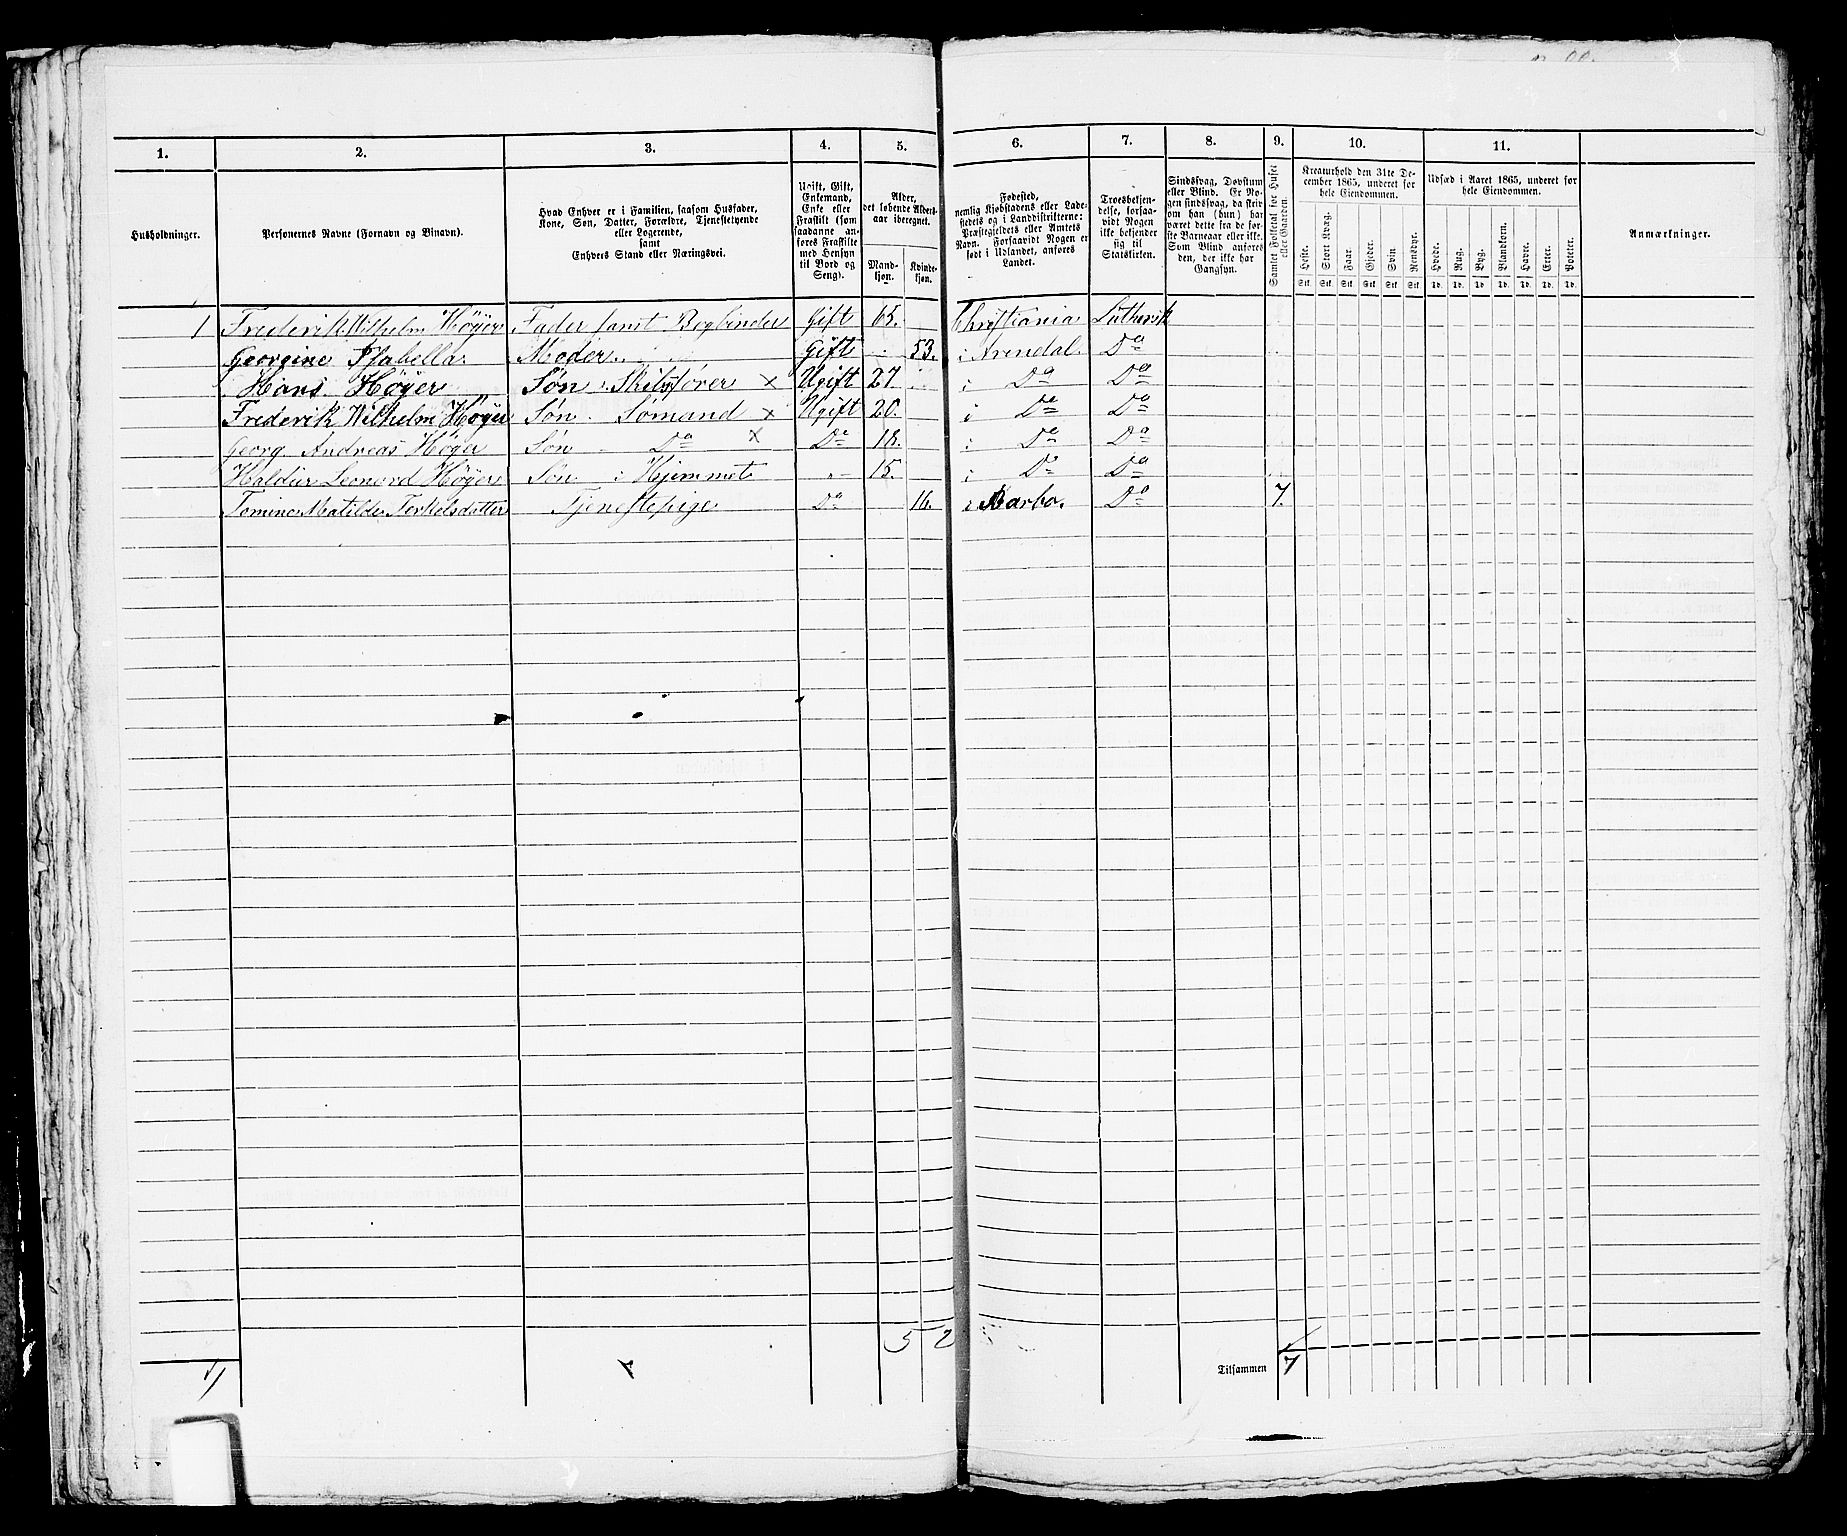 1. 2. 3. 4. 5. 6. 7. 8. 9. 10. 11.
Husholdninger.
Personernes Navne (Fornavn og Binavn).
Hvad Enhver er i Familien, saasom Husfader,
Kone, Søn, Datter, Forældre, Tjenestetyende
eller Logerende,
samt
Enhvers Stand eller Næringsvei.
Ugift, Gift,
Enkemand,
Enke eller
Fraskilt (som
saadanne an-
føres Fraskilte
med Hensyn
til Bord og
Seng).
Alder,
det løbende Alders-
aar iberegnet.
Mand-
kjøn.
Kvinde-
kjøn.
Fødested,
nemlig Kjøbstadens eller Lade-
stedets og i Landdistrikterne:
Præstegjeldets eller Amtets
Navn. Forsaavidt Nogen er
født i Udlandet, anføres
Landet.
Troesbekjen-
delse, forsaa-
vidt Nogen
ikke bekjender
sig til
Statskirken.
Sindssvag, Døvstum
eller Blind. Er No-
gen sindssvag, da skriv
om han (hun) har
været dette fra de før-
ste Barneaar eller ikke.
Som Blind anføres
den, der ikke har
Gangsyn.
Samlet Folketal for Huset
eller Gaarden.
Kreaturhold den 31te De-
cember 1865, underet for
hele Eiendommen.
Heste. Stort Kvæg. Faar. Gjeder. Svin. Rensdyr.
Stk. Stk. Stk. Stk. Stk. Stk.
Udsæd i Aaret 1865, underet for
hele Eiendommen.
Hvede. Rug. Byg. Blandkorn. Havre. Erter. Poteter.
Td. Td. Td. Td. Td. Td. Td.
Anmærkninger.
1 Frederik Wilhelm Høÿer Fader samt Bogbinder Gift 65. Christiania Luthersk
Georgine Isabella Moder. Gift 53. i Arendal. Do
Hans Høÿer Søn. Skibsfører x Ugift 27 i Do Do
Frederik Wilhelm Høÿer Søn. Sømand x Ugift 20. i Do Do
Georg Andreas Høÿer Søn Do x Do 18. i Do Do
Haldur Leonord Høÿer Søn i Hjemmet 15. i Do Do
Tomine Matilde Terkelsdatter Tjenestepige Do 16. i Barbo. Do 7.
5 2
1
Tilsammen 7